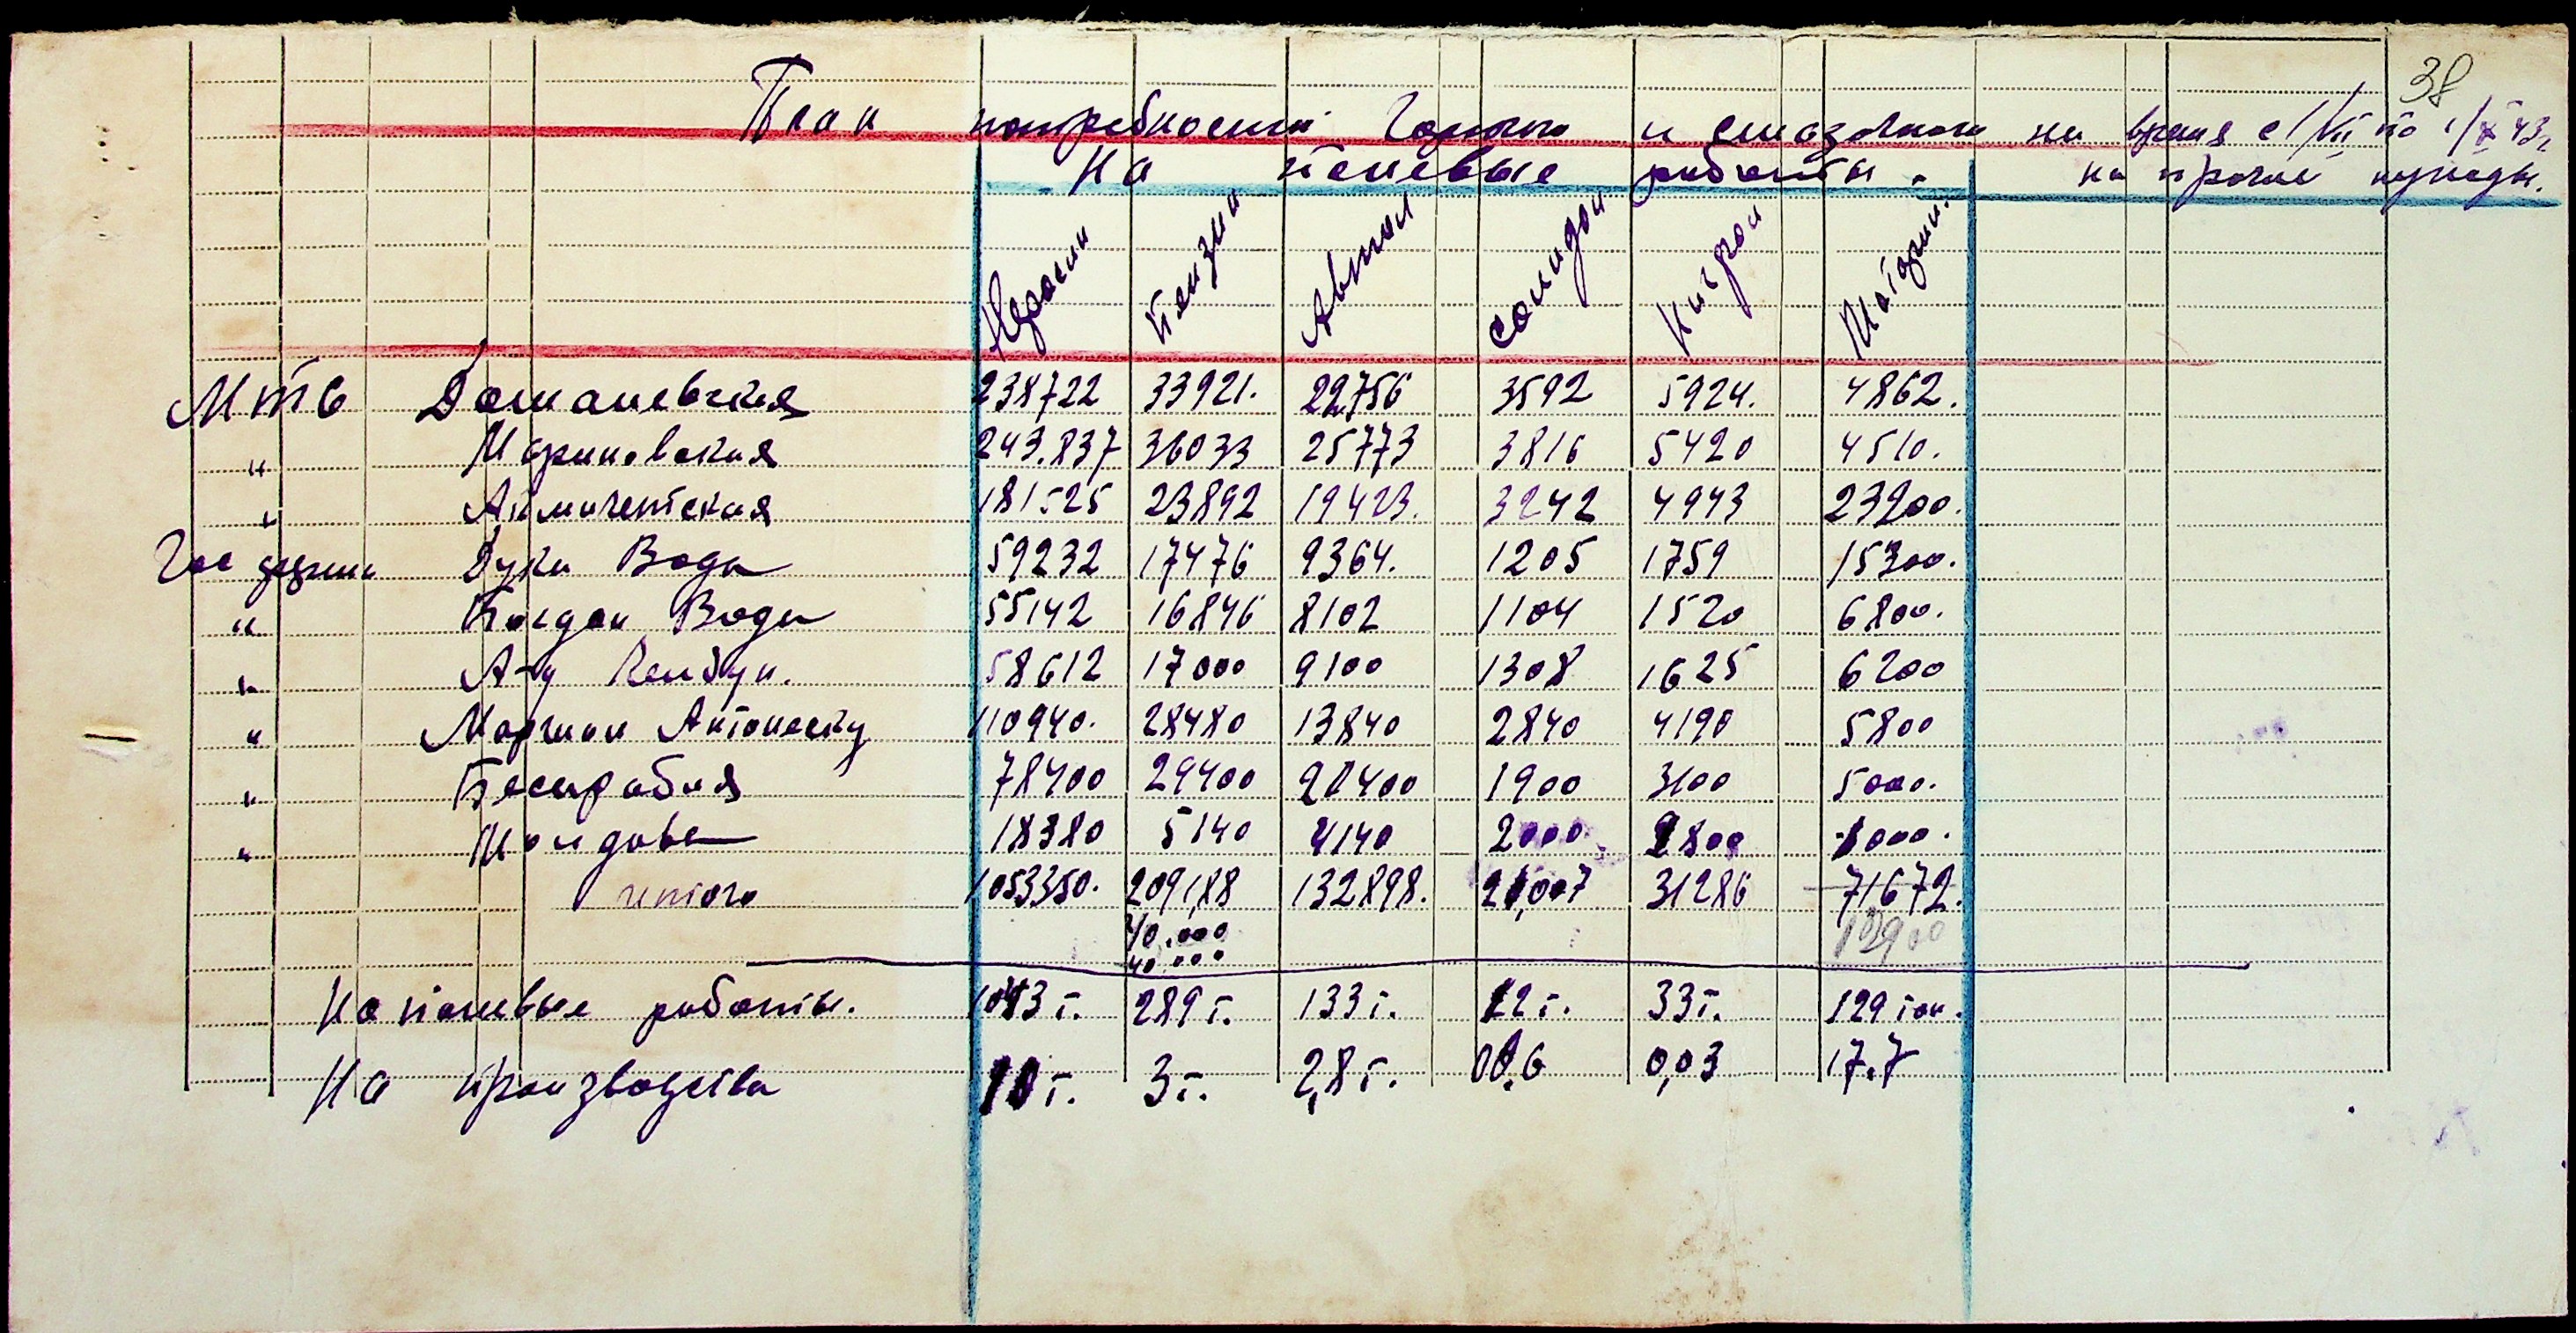 38
План потребности Горючего и смазочного на время с 1/VII по 1/X 43 г.
На полевые работы. на прочие нужды.
Керосин Бензин Автол Солидол Нигрол Моторин.
МТС Доманевская 238722 33921. 22756 3592 5924. 4862.
" Мариновская 243.837 36033 25773 3816 5420 4510.
" Акмичетская 181525 23892 19423. 3242 4943 23200.
Гос фермы Дука Вода 59232 17476 9364. 1205 1759 15300.
" Богдан Вода 55142 16846 8102 1104 1520 6800.
" А-у 58612 17000 9100 1308 1625 6200
" Маршал Антонеску 110940. 28480 13840 2840 4190 5800
" Бесарабия 78400 29400 20400 1900 3100 5000.
" Молдова 18380 5140 4140 2000 2800 1000.
итого 1053350. 209188 132898. 21,007 31286 71672.
40.000
40.000
На полевые работы. 1043 т. 289 т. 133 т. 22 т. 33 т. 129 тон.
На производства 10 т. 3 т. 2,8 т. 0,03 17.7